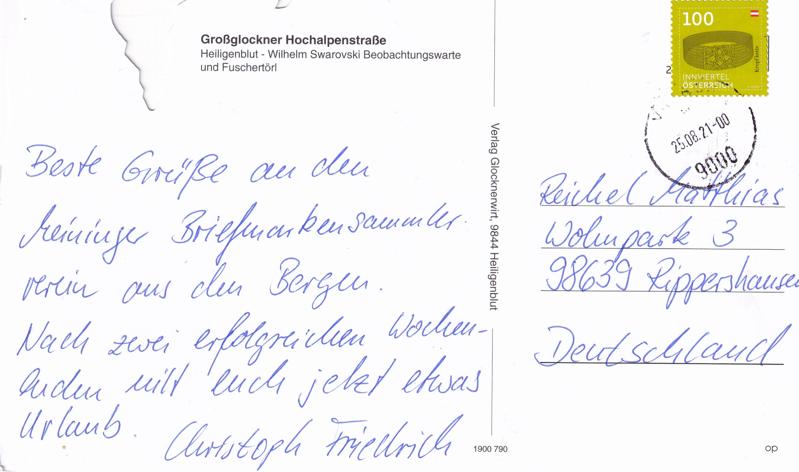 Großglockner Hochalpenstraße
Heiligenblut - Wilhelm Swarovski Beobachtungswarte
und Fuschertörl
Beste Grüße an den
Meininger Briefmarkensammler-
verein aus den Bergen.
Nach zwei erfolgreichen Wochen-
enden mit euch jetzt etwas
Urlaub.
Christoph Friedrich
1900 790
Verlag Glocknerwirt, 9844 Heiligenblut
100
INNVIERTEL
ÖSTERREICH
25.08.21-00
9000
Reichel Matthias
Wohnpark 3
98639 Rippershausen
Deutschland
op